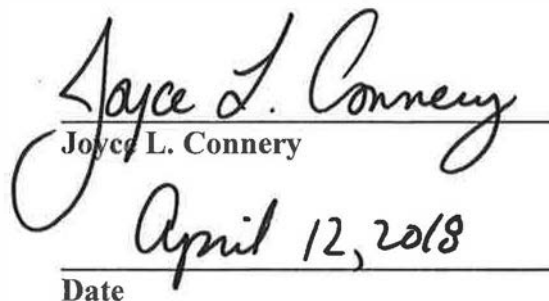 Joyce L. Connery
Joyce L. Connery
April 12, 2018
Date